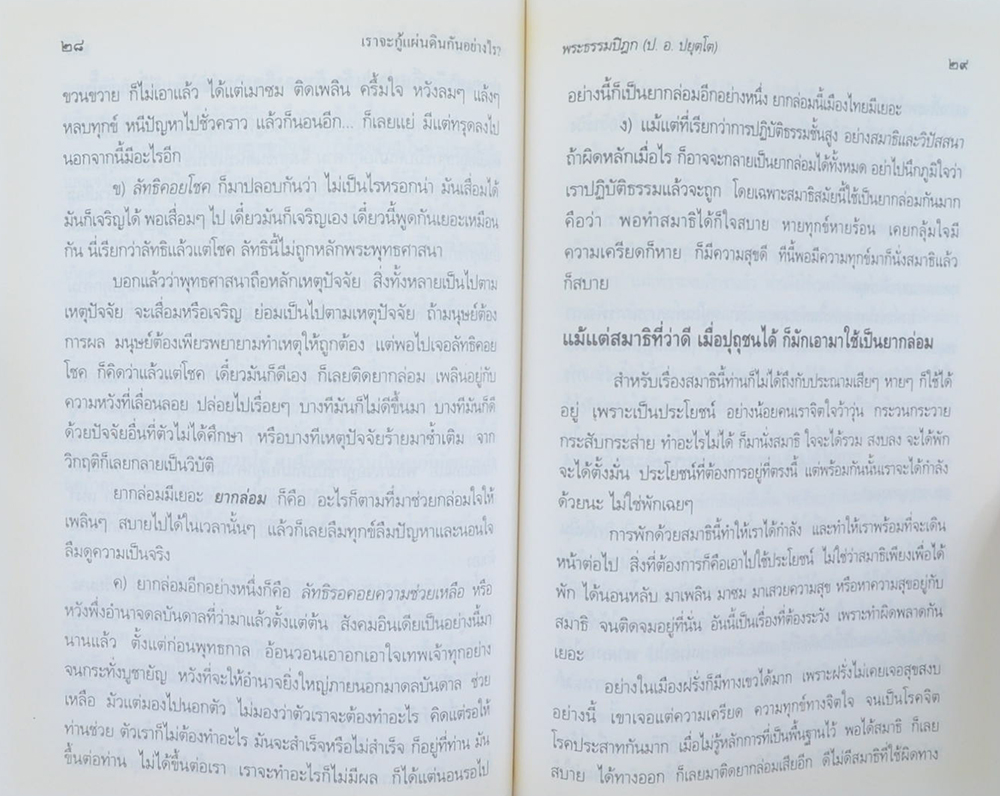 ๒๘
เราจะกู้แผ่นดินกันอย่างไร?
ขวนขวาย ก็ไม่เอาแล้ว ได้แต่เมาซม ติดเพลิน ครึ้มใจ หวังลมๆ แล้งๆ
หลบทุกข์ หนีปัญหาไปชั่วคราว แล้วก็นอนอีก... ก็เลยแย่ มีแต่ทรุดลงไป
นอกจากนี้มีอะไรอีก
ข) ลัทธิคอยโชค ก็มาปลอบกันว่า ไม่เป็นไรหรอกน่า มันเสื่อมได้
มันก็เจริญได้ พอเสื่อมๆ ไป เดี๋ยวมันก็เจริญเอง เดี๋ยวนี้พูดกันเยอะเหมือน
กัน นี่เรียกว่าลัทธิแล้วแต่โชค ลัทธินี้ไม่ถูกหลักพระพุทธศาสนา
บอกแล้วว่าพุทธศาสนาถือหลักเหตุปัจจัย สิ่งทั้งหลายเป็นไปตาม
เหตุปัจจัย จะเสื่อมหรือเจริญ ย่อมเป็นไปตามเหตุปัจจัย ถ้ามนุษย์ต้อง
การผล มนุษย์ต้องเพียรพยายามทำเหตุให้ถูกต้อง แต่พอไปเจอลัทธิคอย
โชค ก็คิดว่าแล้วแต่โชค เดี๋ยวมันก็ดีเอง ก็เลยติดยากล่อม เพลินอยู่กับ
ความหวังที่เลื่อนลอย ปล่อยไปเรื่อยๆ บางทีมันก็ไม่ดีขึ้นมา บางทีมันก็ดี
ด้วยปัจจัยอื่นที่ตัวไม่ได้ศึกษา หรือบางทีเหตุปัจจัยร้ายมาซ้ำเติม จาก
วิกฤติก็เลยกลายเป็นวิบัติ
ยากล่อมมีเยอะ ยากล่อม ก็คือ อะไรก็ตามที่มาช่วยกล่อมใจให้
เพลินๆ สบายไปได้ในเวลานั้นๆ แล้วก็เลยลืมทุกข์ลืมปัญหาและนอนใจ
ลืมดูความเป็นจริง
ค) ยากล่อมอีกอย่างหนึ่งก็คือ ลัทธิรอคอยความช่วยเหลือ หรือ
หวังพึ่งอำนาจดลบันดาลที่ว่ามาแล้วตั้งแต่ต้น สังคมอินเดียเป็นอย่างนี้มา
นานแล้ว ตั้งแต่ก่อนพุทธกาล อ้อนวอนเอาอกเอาใจเทพเจ้าทุกอย่าง
จนกระทั่งบูชายัญ หวังที่จะให้อำนาจยิ่งใหญ่ภายนอกมาดลบันดาล ช่วย
เหลือ มัวแต่มองไปนอกตัว ไม่มองว่าตัวเราจะต้องทำอะไร คิดแต่รอให้
ท่านช่วย ตัวเราก็ไม่ต้องทำอะไร มันจะสำเร็จหรือไม่สำเร็จ ก็อยู่ที่ท่าน มัน
ขึ้นต่อท่าน ไม่ได้ขึ้นต่อเรา เราจะทำอะไรก็ไม่มีผล ก็ได้แต่นอนรอไป
พระธรรมปิฎก (ป. อ. ปยุตฺโต)
๒๙
อย่างนี้ก็เป็นยากล่อมอีกอย่างหนึ่ง ยากล่อมนี้เมืองไทยมีเยอะ
ง) แม้แต่ที่เรียกว่าการปฏิบัติธรรมชั้นสูง อย่างสมาธิและวิปัสสนา
ถ้าผิดหลักเมื่อไร ก็อาจจะกลายเป็นยากล่อมได้ทั้งหมด อย่าไปนึกภูมิใจว่า
เราปฏิบัติธรรมแล้วจะถูก โดยเฉพาะสมาธิสมัยนี้ใช้เป็นยากล่อมกันมาก
คือว่า พอทำสมาธิได้ก็ใจสบาย หายทุกข์หายร้อน เคยกลุ้มใจมี
ความเครียดก็หาย ก็มีความสุขดี ทีนี้พอมีความทุกข์มาก็นั่งสมาธิแล้ว
ก็สบาย
แม้แต่สมาธิที่ว่าดี เมื่อปุถุชนได้ ก็มักเอามาใช้เป็นยากล่อม
สำหรับเรื่องสมาธินี้ท่านก็ไม่ได้ถึงกับประณามเสียๆ หายๆ ก็ใช้ได้
อยู่ เพราะเป็นประโยชน์ อย่างน้อยคนเราจิตใจว้าวุ่น กระวนกระวาย
กระสับกระส่าย ทำอะไรไม่ได้ ก็มานั่งสมาธิ ใจจะได้รวม สงบลง จะได้พัก
จะได้ตั้งมั่น ประโยชน์ที่ต้องการอยู่ที่ตรงนี้ แต่พร้อมกันนั้นเราจะได้กำลัง
ด้วยนะ ไม่ใช่พักเฉยๆ
การพักด้วยสมาธินี้ทำให้เราได้กำลัง และทำให้เราพร้อมที่จะเดิน
หน้าต่อไป สิ่งที่ต้องการก็คือเอาไปใช้ประโยชน์ ไม่ใช่ว่าสมาธิเพียงเพื่อได้
พัก ได้นอนหลับ มาเพลิน มาซม มาเสวยความสุข หรือหาความสุขอยู่กับ
สมาธิ จนติดจมอยู่ที่นั่น อันนี้เป็นเรื่องที่ต้องระวัง เพราะทำผิดพลาดกัน
เยอะ
อย่างในเมืองฝรั่งก็มีทางเขวได้มาก เพราะฝรั่งไม่เคยเจอสุขสงบ
อย่างนี้ เขาเจอแต่ความเครียด ความทุกข์ทางจิตใจ จนเป็นโรคจิต
โรคประสาทกันมาก เมื่อไม่รู้หลักการที่เป็นพื้นฐานไว้ พอได้สมาธิ ก็เลย
สบาย ได้ทางออก ก็เลยมาติดยากล่อมเสียอีก ดีไม่ดีสมาธิที่ใช้ผิดทาง